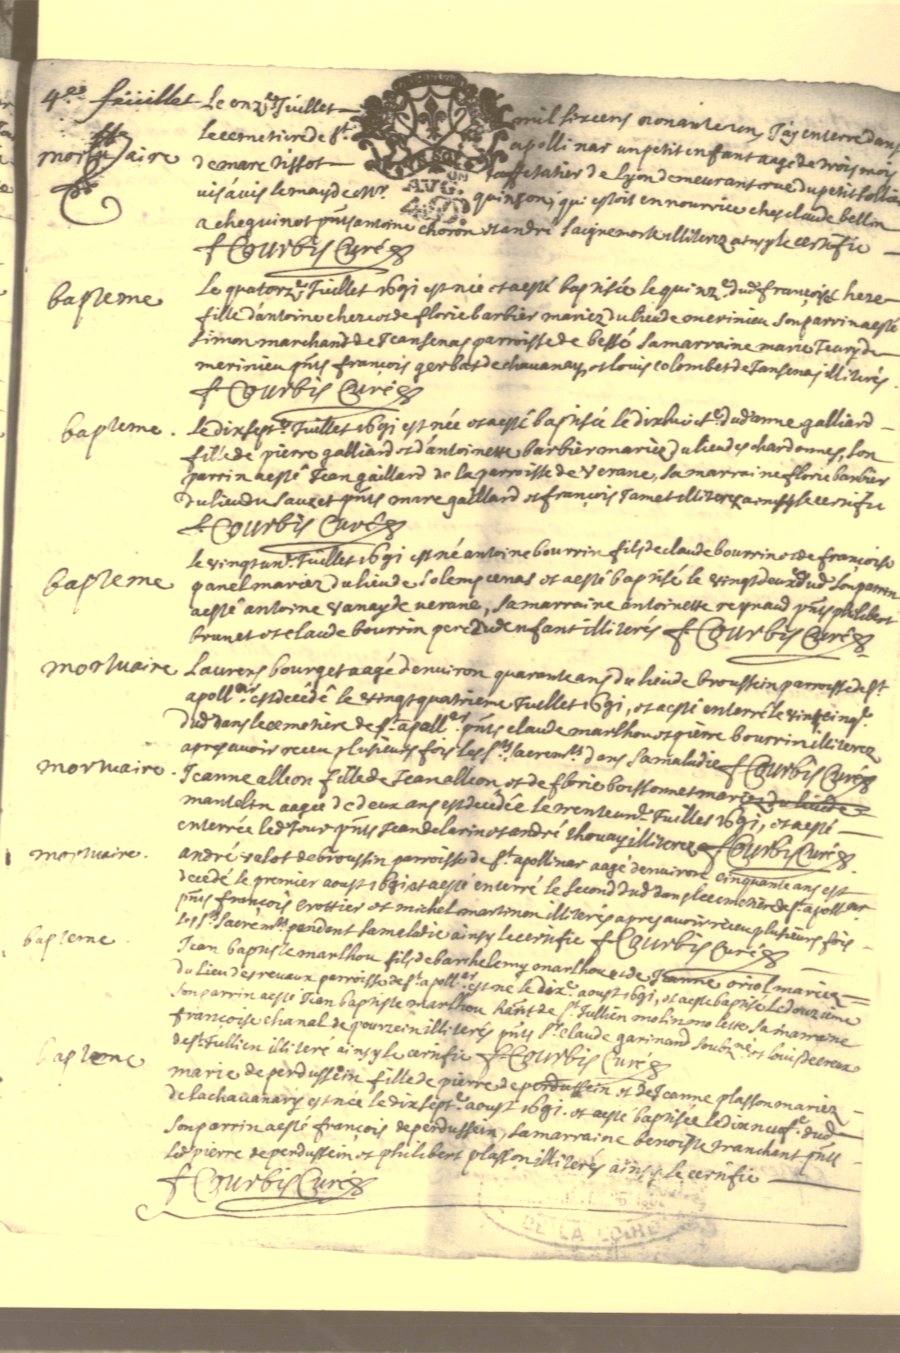 4.e feüillet Le onz.e Juillet mil six cens nonante un, J'ay enterré dans
mortuaire
le cemetiere de S.t apollinar un petit enfant aagé de trois mois
de marc Tissot taffetatier de Lyon demeurant rue du petit
vis à vis le may de M.r quinson, qui estoit en nourrice ches claude bellin
a cheguinot pnts antoine choron et andré illiterez ainsy le certifie
Courbis Curé
AVG. 
bapteme
Le quatorz.e Juillet 1691 est née et a esté baptisée le quinz.e dud françoise here
fille d'antoine chere et de florie barbier mariez du lieu de merinieu son parrin a esté
Simon marchand de Jansenas parroisse de bessé Sa marraine marie Teury de
merinieu pnts françois gerbat de chavanay, et louis colombet de Jansenas illiterés
Courbis Curé
bapteme.
Le dix sept.e Juillet 1691 est née et a esté baptisée le dix huict.e dud anne galliard
fille de pierre galliard et d'antoinette barbier mariez du lieu des chardonnes, Son
parrin a esté Jean gaillard de la parroisse de Verane, Sa marraine florie barbier
du lieu du Sauzet pnts gaillard et françois Jamet illiterez ainsy le certifie
Courbis Curé
bapteme
le vingt un.e Juillet 1691 est né antoine bourrin fils de claude bourrin et de françoise
ganel mariez du lieu de Solempenas et a esté baptisé le vingt deux.e dud Son parrin
a esté antoine vanay de verane, Sa marraine antoinette reynaud pnts philibert
brunet et claude bourrin pere dud enfant illiterés Courbis Curé
mortuaire
Laurens bourget aagé d'environ quarante ans du lieu de broussin parroisse de S.t
apoll.ar est decedé le vingt quatrieme Juillet 1691, et a esté enterré le vint cinq.e
dud dans le cemetiere de S.t apoll.ar pnts claude marlhou et pierre bourrin illiterez
apres avoir receu plusieurs fois les S.ts Sacrem.ts dans Sa maladie Courbis Curé
mortuaire.
Jeanne alleon fille de Jean alleon et de florie boissonnet mariez du lieu de
mantelin aagée de deux ans est decedée le trente un.e Juillet 1691, et a esté
enterrée led Jour pnts Jean delarin et andré thouay illiterez Courbis Curé
mortuaire.
andré valot de broussin parroisse de S.t apollinar aagé d'environ cinquante ans est
decedé le premier aoust 1691 et a esté enterré le Second dud dans le cemetiere de S.t apoll.ar
pnts françois crottier et michel martinon illiterés apres avoir receu plusieurs fois
les S.ts Sacrem.ts pendent Sa maladie ainsy le certifie Courbis Curé
bapteme
Jean baptiste marlhou fils de barthelemy marlhou et de Jeanne oriol mariez
du lieu des revaux parroisse de S.t apoll.ar est né le dix.e aoust 1691, et a esté baptisé le douzieme
Son parrin a esté Jean baptiste marlhou hant de S.t Jullien molin molette Sa marraine
françoise chanal de gourzein illiterés pnts S.r claude garinand soubz.né et louis decreux
de S.t Jullien illiteré ainsy le certifie Courbis Curé
bapteme
marie de perdussein fille de pierre de perdussein et de Jeanne plasson mariez
de la chavanary est née le dix sept.e aoust 1691. et a esté baptisée le dix neuf.e dud
Son parrin a esté françois de perdussein, Sa marraine benoiste tranchant pnts
led pierre de perdussein et philibert plasson illiterés ainsy le certifie
Courbis Curé
DE LA LOIRE